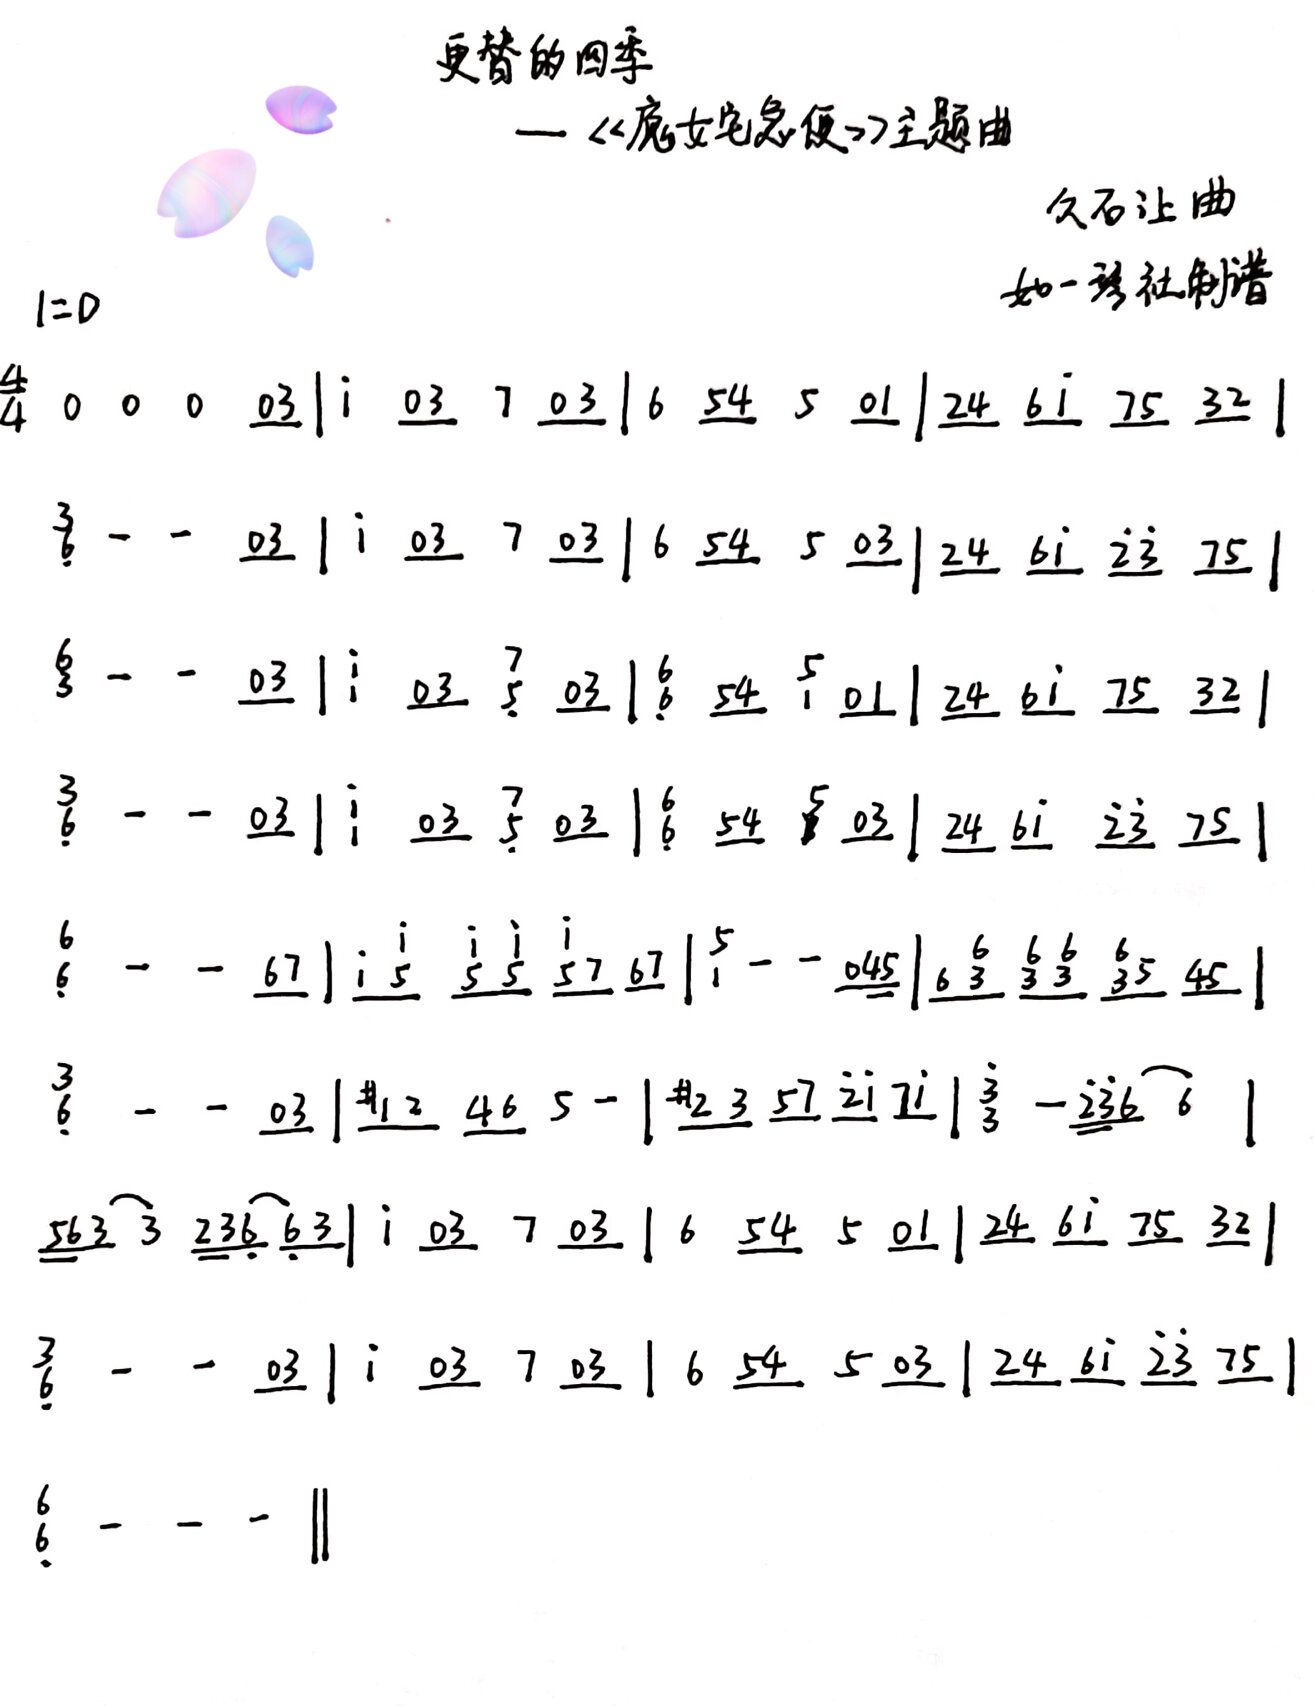 更替的四季
—<<魔女宅急便>>主题曲
久石让曲
如一琴社制谱
1=D
4/4 0 0 0 03 | i 03 7 03 | 6 54 5 01 | 24 6i 75 32 |
3/6̣ - - 03 | i 03 7 03 | 6 54 5 03 | 24 6i 2̇3̇ 75 |
6/3 - - 03 | i/1 03 7/5̣ 03 | 6/6̣ 54 5/1 01 | 24 6i 75 32 |
3/6̣ - - 03 | i/1 03 7/5̣ 03 | 6/6̣ 54 5/1 03 | 24 6i 2̇3̇ 75 |
6/6̣ - - 67 | i i/5 i/5 i/5 i/5 7 67 | 5/1 - - 045 | 6 6/3 6/3 6/3 6/3 5 45 |
3/6̣ - - 03 | #12 46 5 - | #23 57 2̇i 7i | 3̇/3 - 2̇3̇6 6 |
563 3 236̣ 6̣3 | i 03 7 03 | 6 54 5 01 | 24 6i 75 32 |
3/6̣ - - 03 | i 03 7 03 | 6 54 5 03 | 24 6i 2̇3̇ 75 |
6/6̣ - - - ||